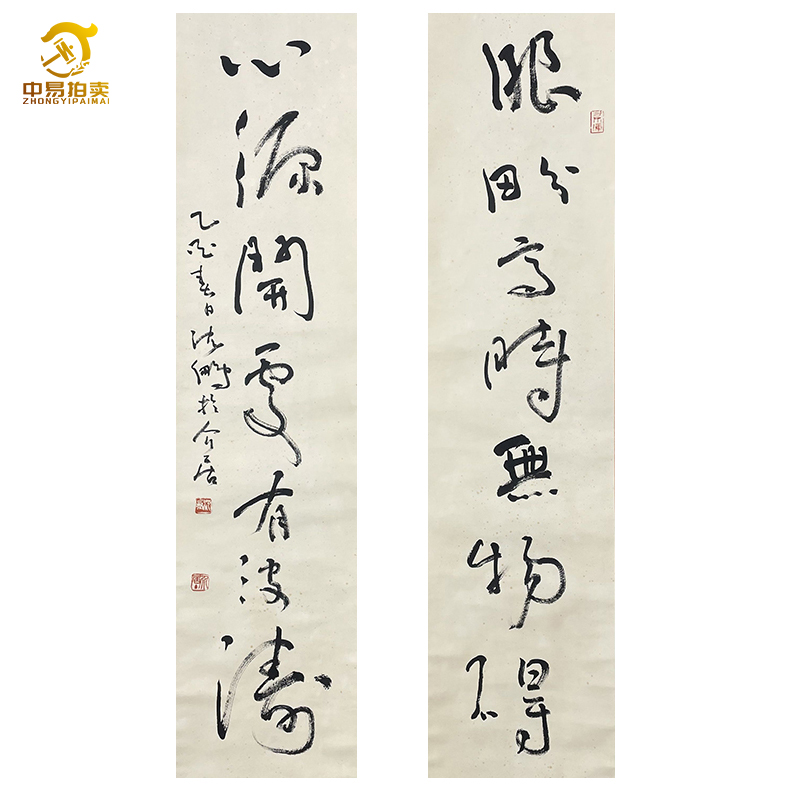 中易拍卖
ZHONGYIPAIMAI
眼畍高時無物碍
心源開處有波濤
乙酉春日沈鵬於介居